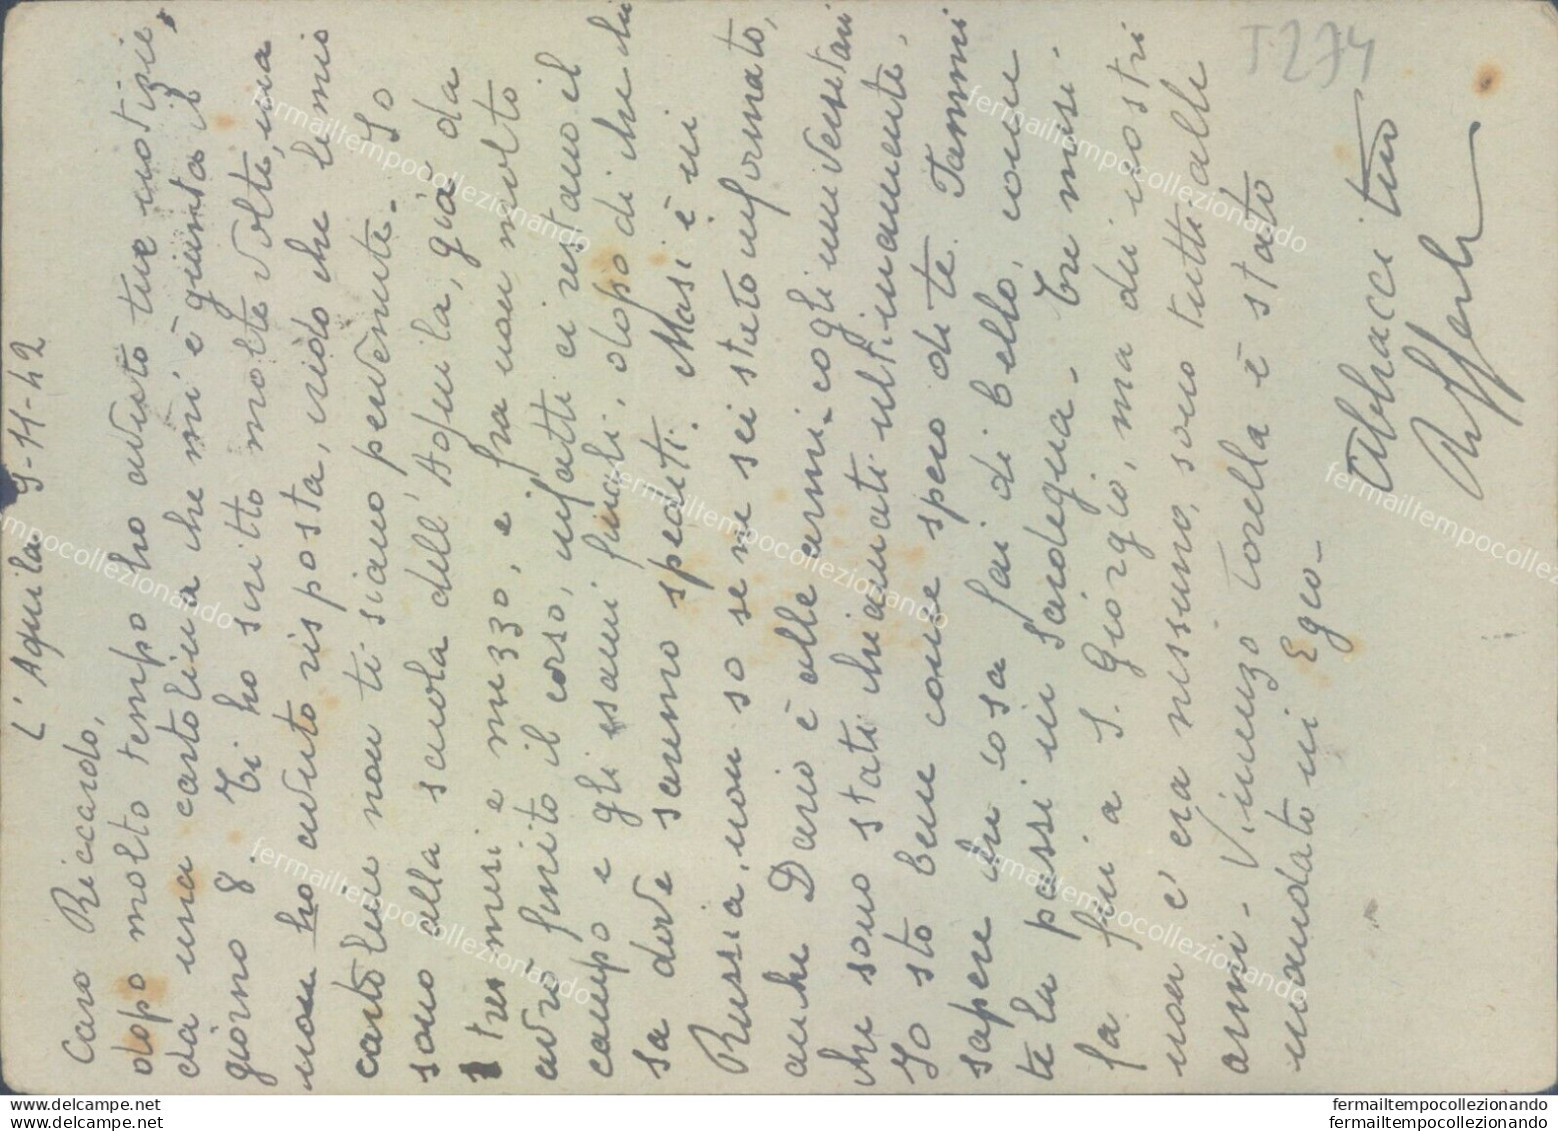 L'Aquila 9-11-42
Caro Riccardo,
dopo molto tempo ho avuto tue notizie,
da una cartolina che mi è giunta il
giorno 8. Ti ho scritto molte volte, ma
non ho avuto risposta, credo che le mie
cartoline non ti siano pervenute. Io
sono alla scuola dell'Aquila, già da
tre mesi e mezzo, e fra non molto
avrò finito il corso, infatti ci restano il
campo e gli esami finali, dopo di che chi
sa dove saremo spediti. Masi è in
Russia, non so se ne sei stato informato,
anche Dario è alle armi - cogli universitari
che sono stati chiamati ultimamente.
Io sto bene come spero di te. Fammi
sapere che cosa fai di bello, come
te la passi in Sardegna. Tre mesi
fa fui a S. Giorgio, ma dei nostri
non c'era nessuno, sono tutti alle
armi - Vincenzo Torella è stato
mandato in Egeo -
Abbracci tuo
T274
fermailtempocollezionando
fermailtempocollezionando
fermailtempocollezionando
fermailtempocollezionando
fermailtempocollezionando
fermailtempocollezionando
fermailtempocollezionando
fermailtempocollezionando
fermailtempocollezionando
fermailtempocollezionando
www.delcampe.net
fermailtempocollezionando
www.delcampe.net
fermailtempocollezionando